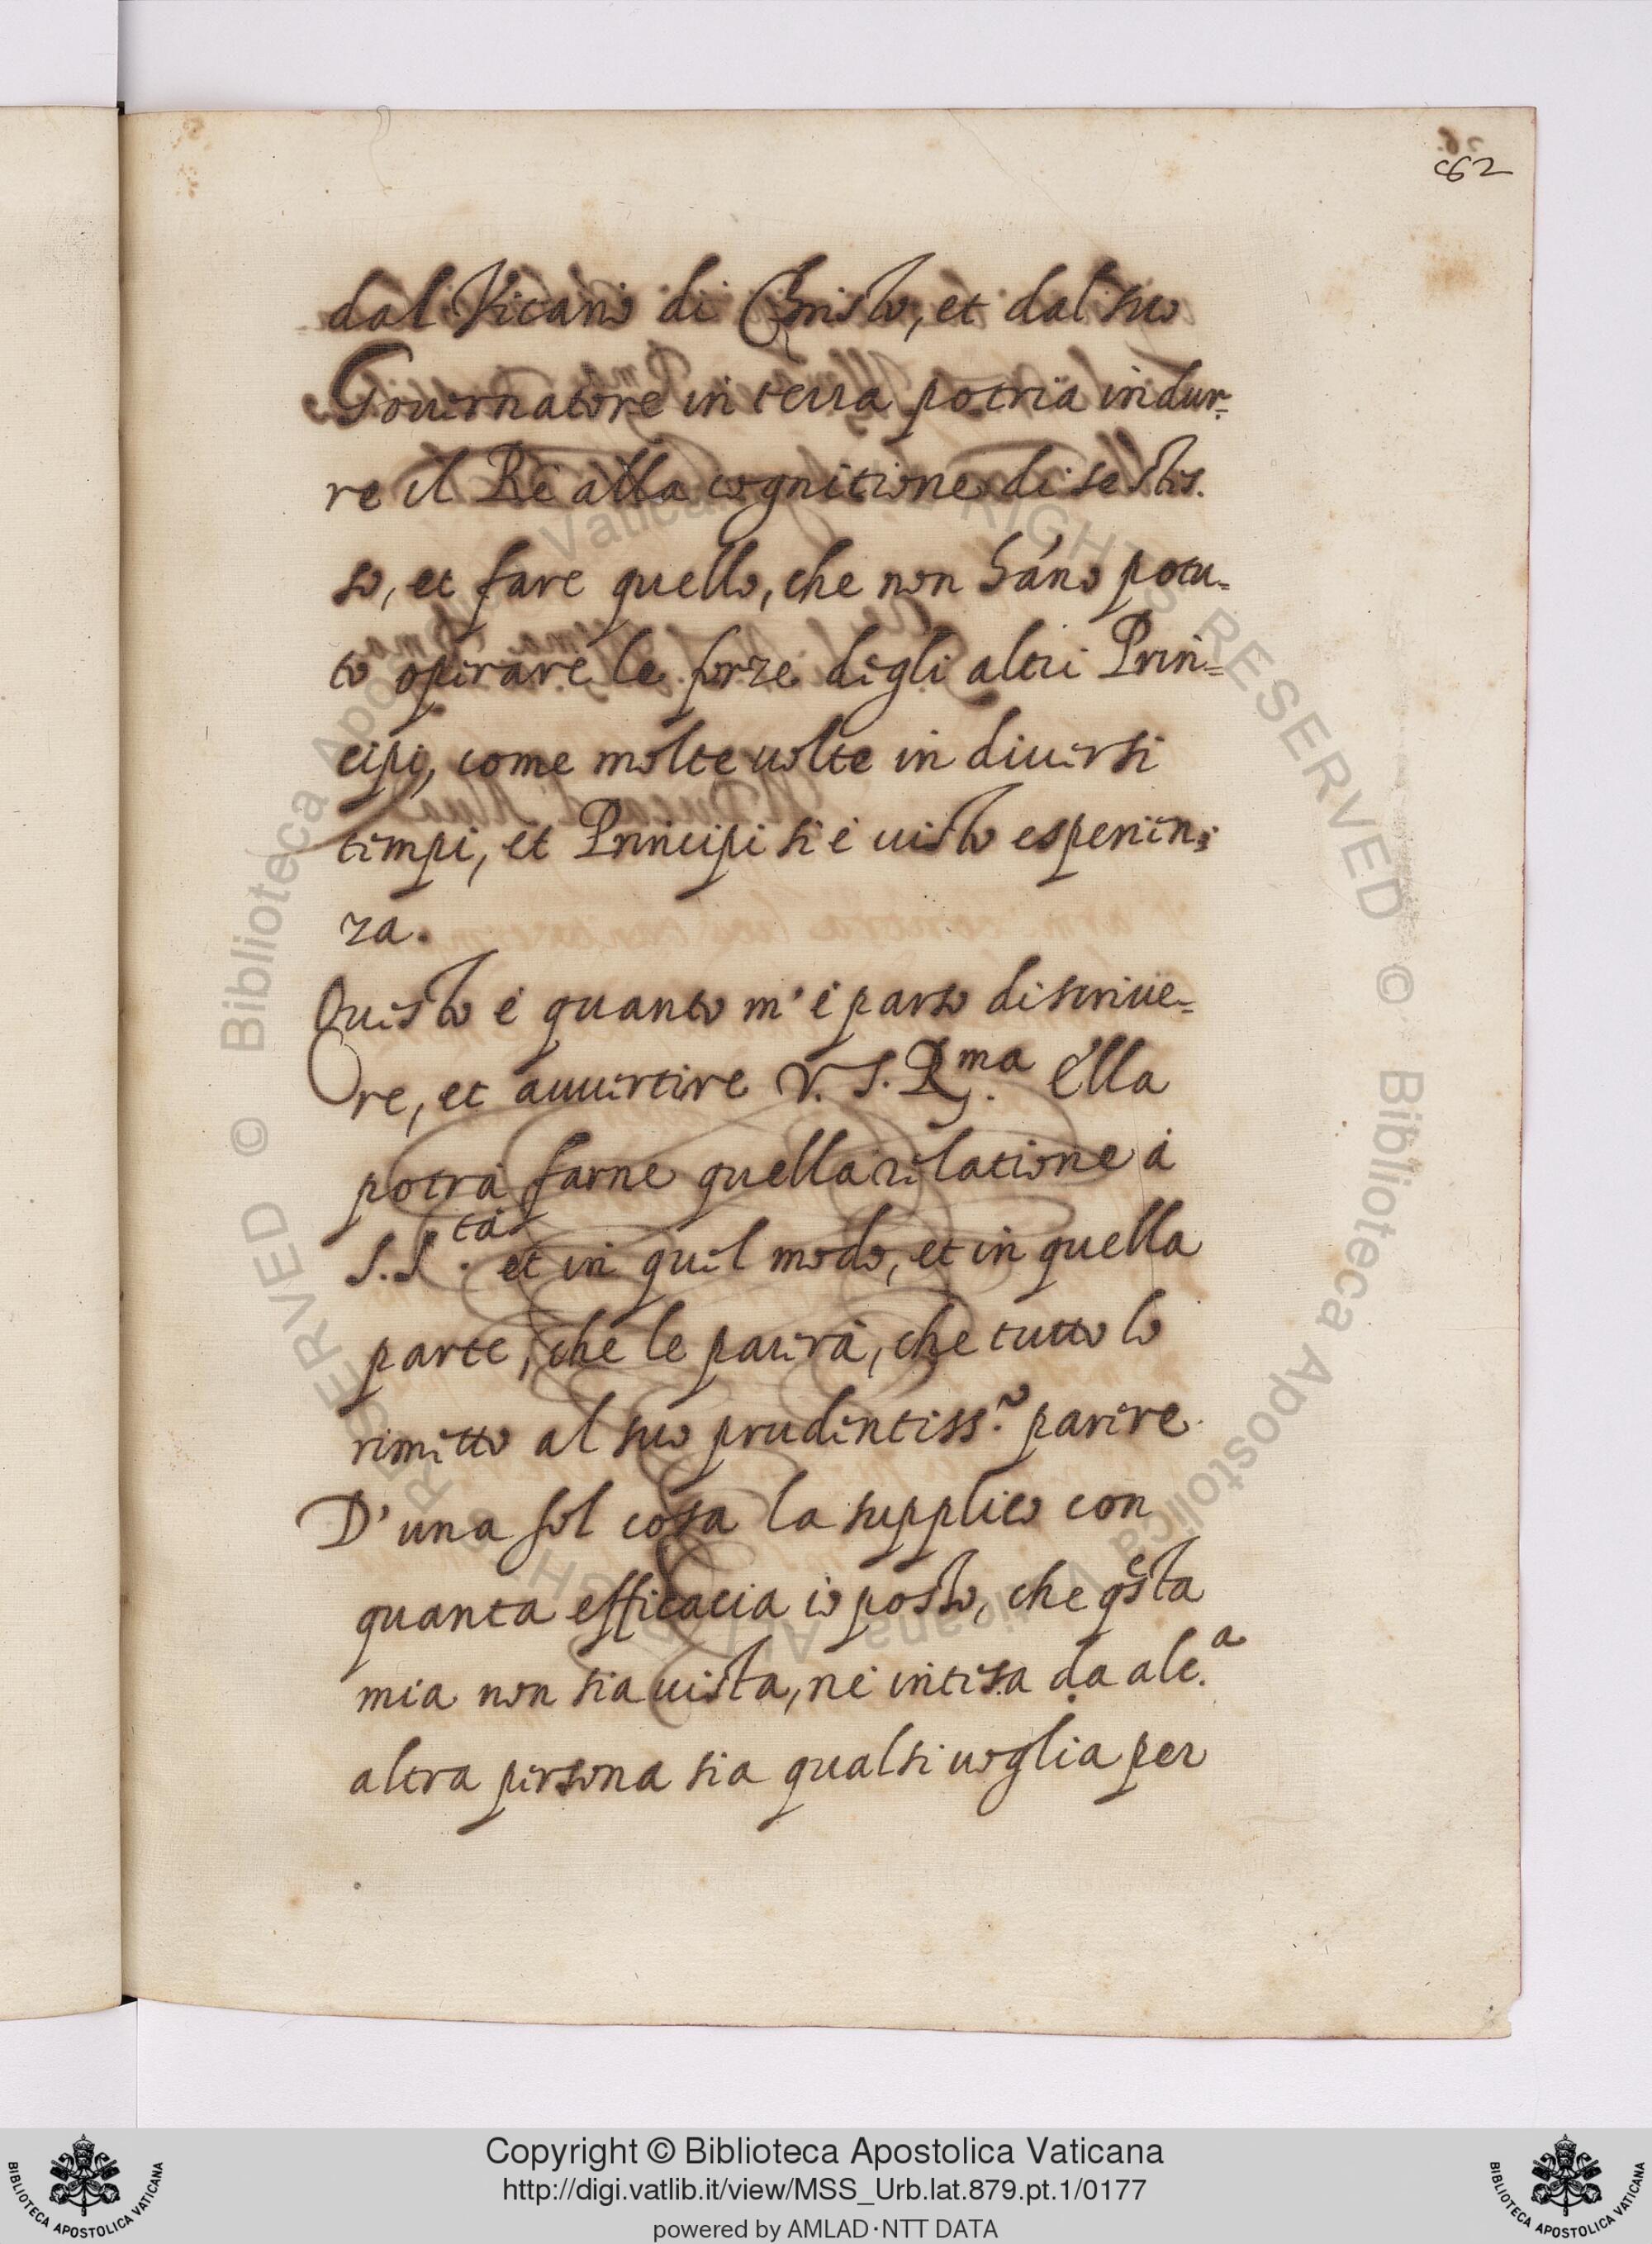 862
dal Vicario di Christo, et dal suo
Gouernatore in terra potria indur=
re il Rè alla cognitione di se stes.
so, et fare quello, che non hãno potu=
to operare le forze degli altri Prin=
cipi, come molte uolte in diuersi
tempi, et Principi si è uisto esperien=
za.
Questo è quanto m'è parso di scriue=
re, et auuertire V. S. R.ma Ella
potrà farne quella relatione à
S. S.tà et in quel modo, et in quella
parte, che le parerà, che tutto lo
rimetto al suo prudentiss.o parere.
D'una sol cosa la supplico con
quanta efficacia io posso, che q̃sta
mia non sia uista, nè intesa da alc.a
altra persona sia qualsiuoglia per
© Biblioteca Apostolica Vaticana ALL RIGHTS RESERVED
© Biblioteca Apostolica Vaticana ALL RIGHTS RESERVED
Copyright © Biblioteca Apostolica Vaticana
http://digi.vatlib.it/view/MSS_Urb.lat.879.pt.1/0177
powered by AMLAD·NTT DATA
BIBLIOTECA APOSTOLICA VATICANA
BIBLIOTECA APOSTOLICA VATICANA